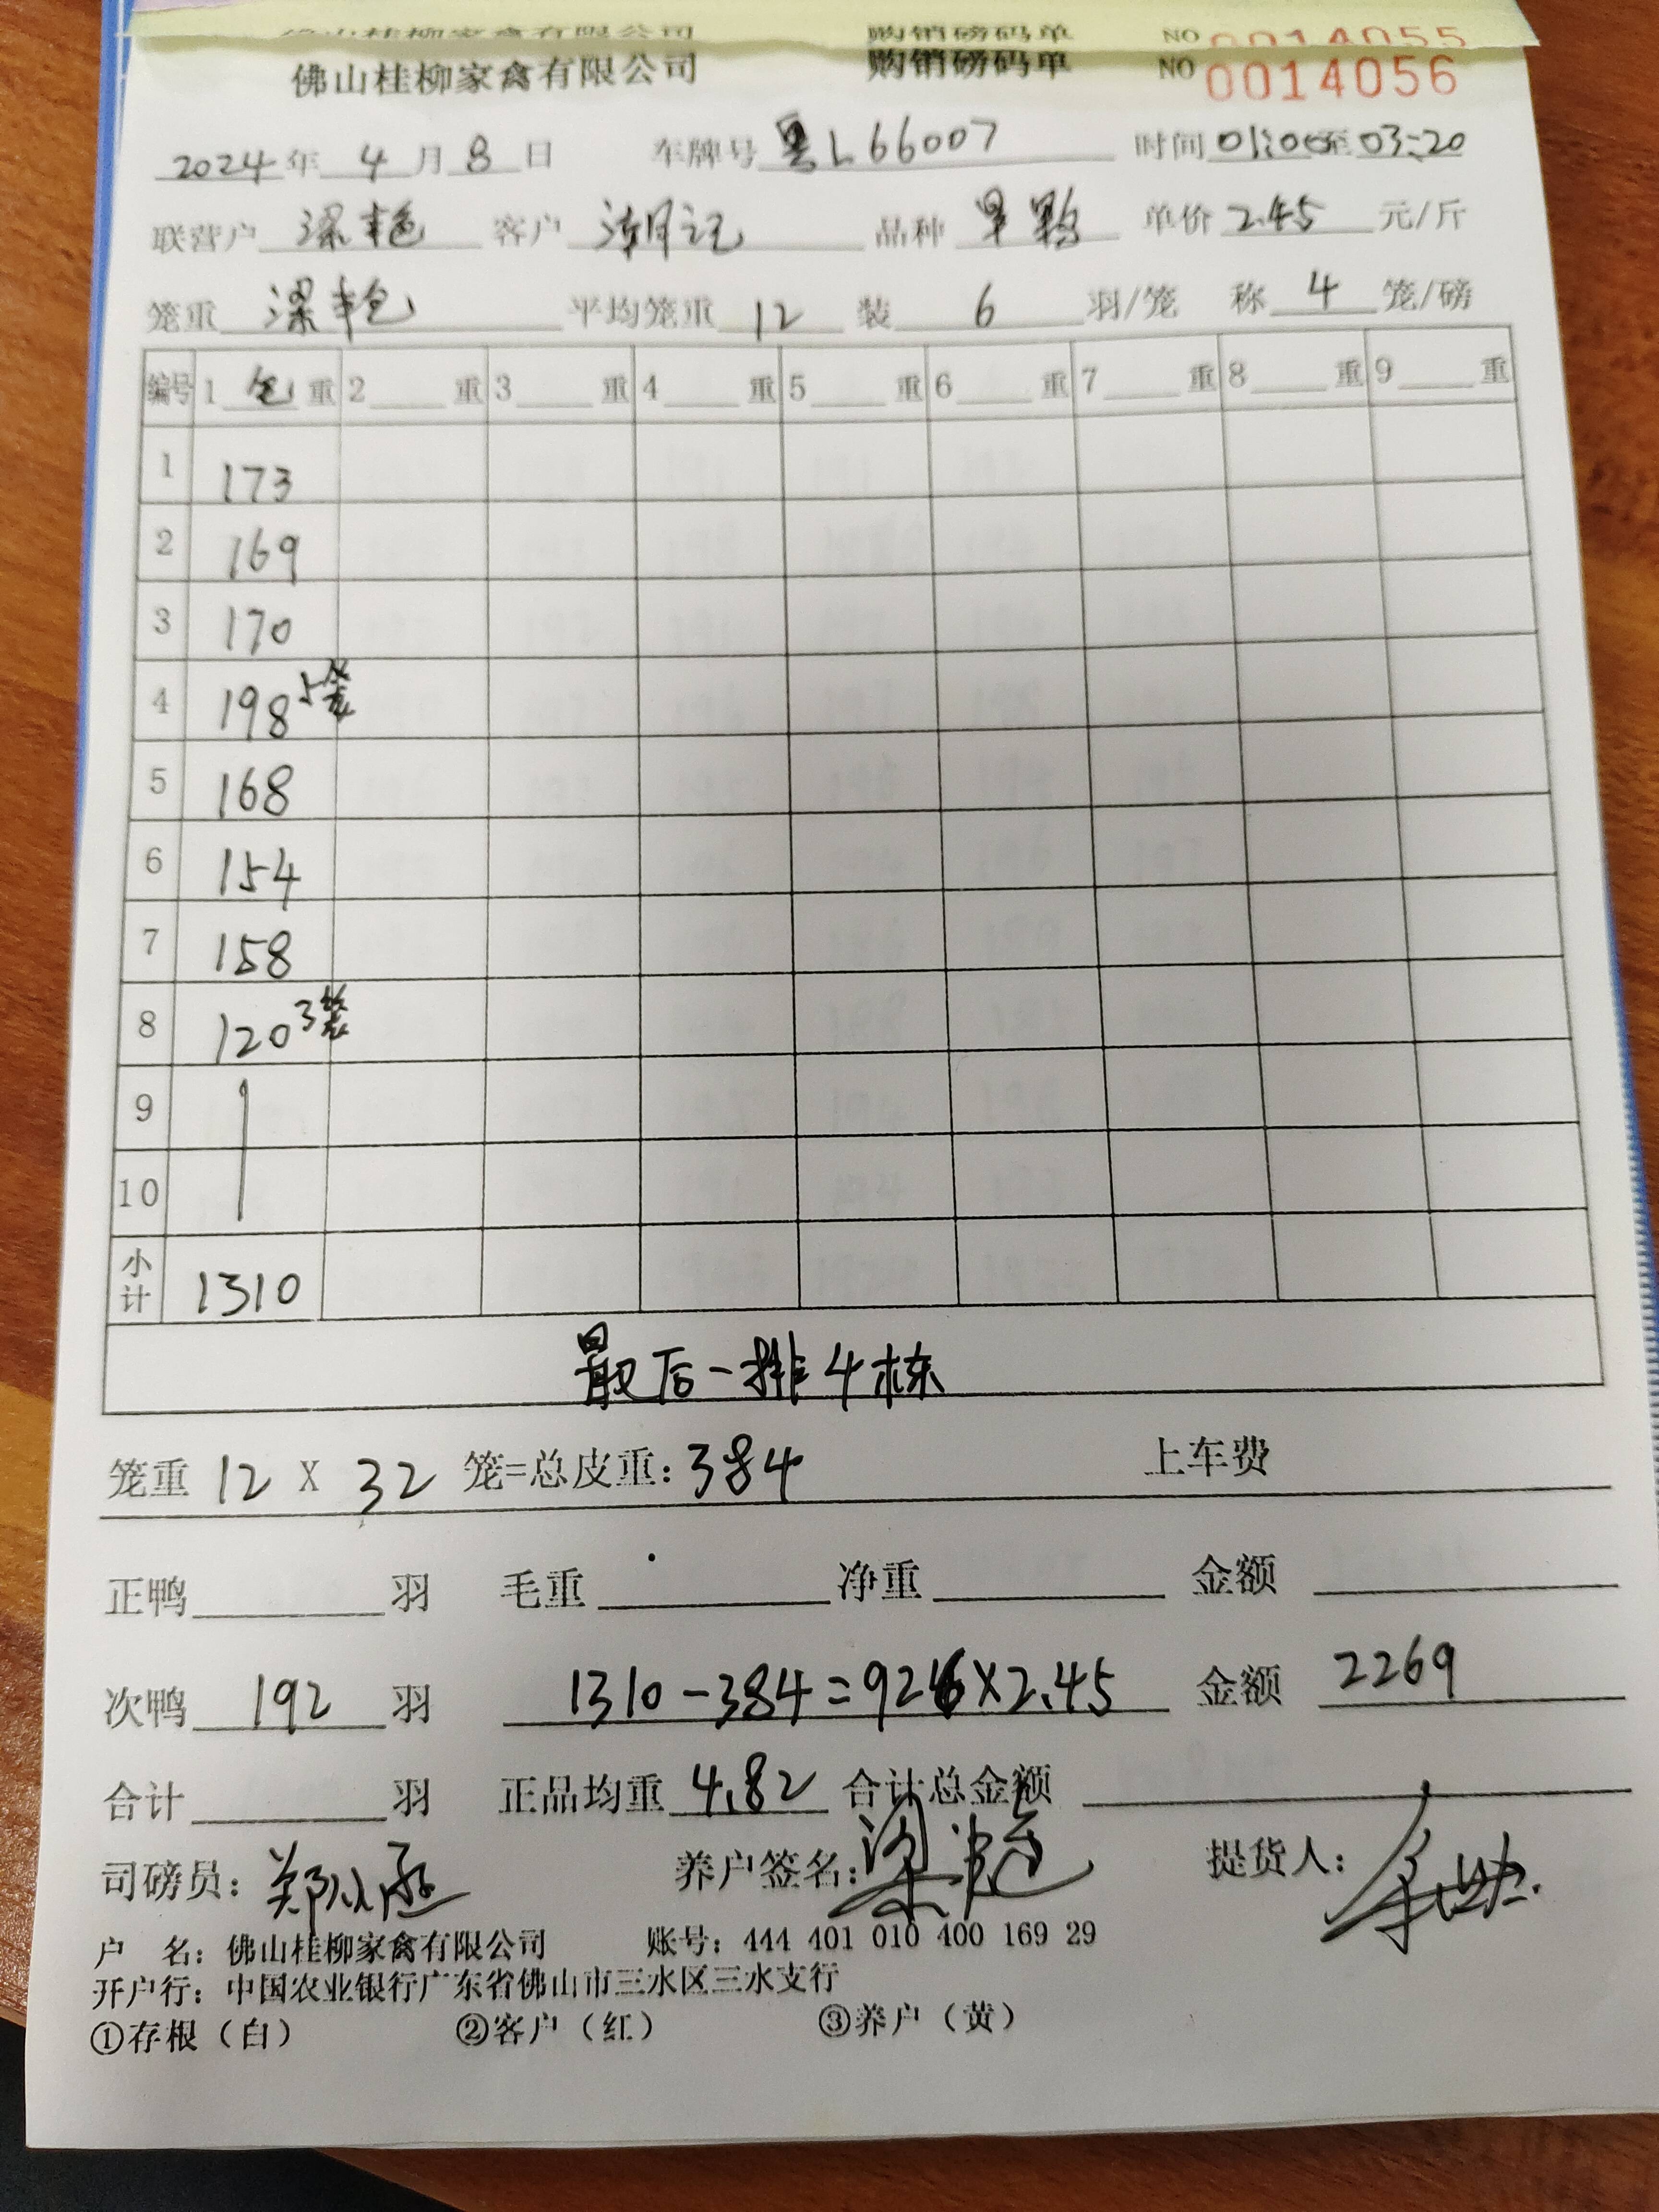 购销磅码单 NO 0014055
佛山桂柳家禽有限公司 购销磅码单 NO 0014056
2024年 4月8日 车牌号 L66007 时间 01:00至03:20
联营户 客户 潮记 品种 单价 2.45 元/斤
笼重 平均笼重 12 装 6 羽/笼 称 4 笼/磅
编号 1 重 2 重 3 重 4 重 5 重 6 重 7 重 8 重 9 重
1 173
2 169
3 170
4 198 5笼
5 168
6 154
7 158
8 120 3笼
9
10
小计 1310
最后一排4栋
笼重 12 X 32 笼=总皮重:384 上车费
正鸭 羽 毛重 净重 金额
次鸭 192 羽 1310-384=926×2.45 金额 2269
合计 羽 正品均重 4.82 合计总金额
司磅员: 养户签名: 提货人:
户 名: 佛山桂柳家禽有限公司 账号: 444 401 010 400 169 29
开户行: 中国农业银行广东省佛山市三水区三水支行
①存根（白） ②客户（红） ③养户（黄）